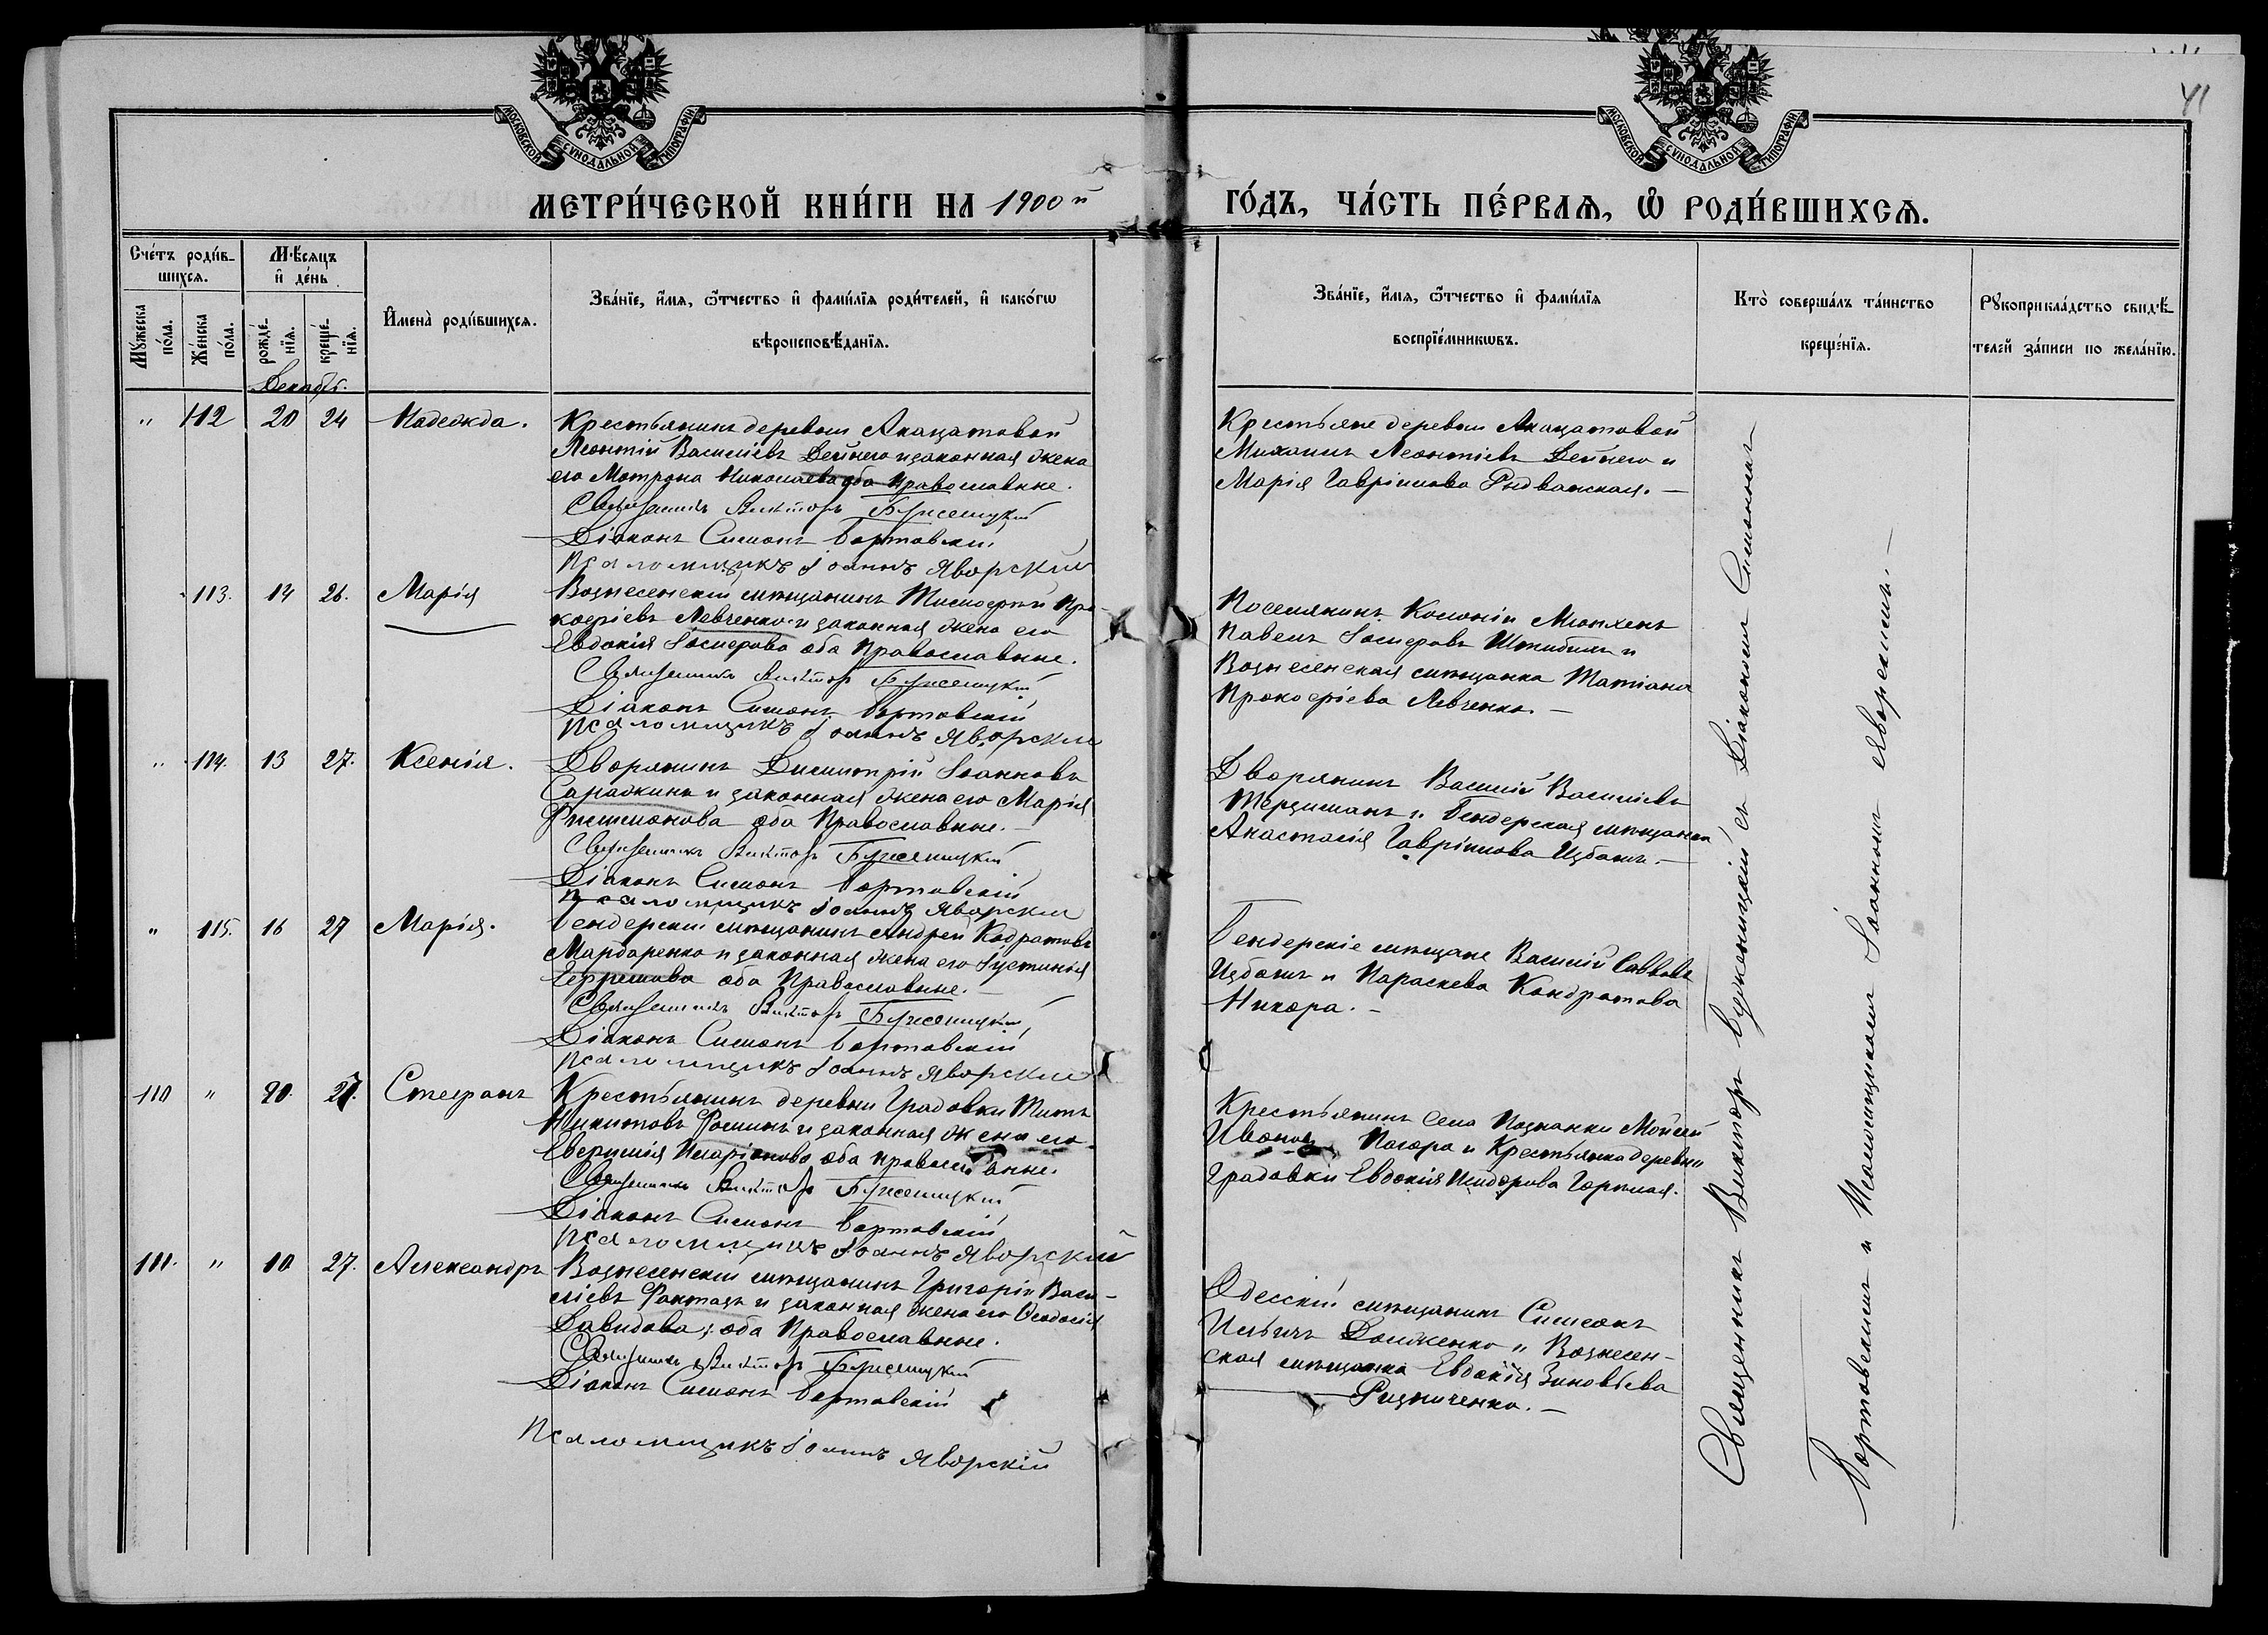 МОСКОВСКОЙ СУНОДАЛЬНОЙ ТИПОГРАФІИ
МОСКОВСКОЙ СУНОДАЛЬНОЙ ТИПОГРАФІИ
41
МЕТРИ́ЧЕСКОЙ КНИ́ГИ НА 1900й ГО́ДЪ, ЧА́СТЬ ПЕ́РВАѦ, Ѡ РОДИ́ВШИХСѦ.
Сче́тъ роди́вшихсѧ.
Мꙋ́жеска по́ла.
Же́нска по́ла.
Мѣ́сѧцъ и де́нь
рожде́нїѧ.
креще́нїѧ.
Имена̀ роди́вшихсѧ.
Зва́нїе, и́мѧ, ѻ҆́тчество и фами́лїѧ роди́телей, и како́гѡ
вѣроисповѣ́данїѧ.
Зва́нїе, и́мѧ, ѻ҆́тчество и фами́лїѧ
воспрїе́мникѡвъ.
Кто̀ соверша́лъ та́инство
креще́нїѧ.
Рꙋкоприкла́дство свидѣ́-
телей за́писи по жела́нїю.
Декабр.
" 112 20 24 Надежда.
Крестьянинъ деревни Акацатовой
Леонтій Василіевъ и законная жена
его Мотрона Николаева оба православные.
Священникъ Викторъ Буженицкій
Діаконъ Симонъ Бортовскій
Псаломщикъ Іоаннъ Яворскій
Крестьяне деревни Акацатовой
Михаилъ Леонтіевъ и
Марія Гавріилова Рыдванская.—
113. 14 26. Марія
Вознесенскій мѣщанинъ Тимофей Про-
кофіевъ Левченко и законная жена его
Евдокія Іосифова оба Православные.
Священникъ Викторъ Буженицкій
Діаконъ Симонъ Бортовскій
Псаломщикъ Іоаннъ Яворскій
Поселянинъ Колоніи Мюнхенъ
Павелъ Іосифовъ и
Вознесенская мѣщанка Татіана
Прокофіева Левченко.—
" 114. 13 27. Ксенія.
Дворянинъ Димитрій Іоанновъ
Саражинъ и законная жена его Марія
Филимонова оба Православные.—
Священникъ Викторъ Буженицкій
Діаконъ Симонъ Бортовскій
Псаломщикъ Іоаннъ Яворскій
Дворянинъ Василій Василіевъ
и Бендерская мѣщанка
Анастасія Гавріилова Цибань.—
" 115. 16 27 Марія.
Бендерскій мѣщанинъ Андрей Кодратовъ
Марбаренко и законная жена его Іустинія
оба Православные.—
Священникъ Викторъ Буженицкій
Діаконъ Симонъ Бортовскій
Псаломщикъ Іоаннъ Яворскій
Бендерскіе мѣщане Василій Саввовъ
Цибань и Параскева Кондратова
Никора.—
110 " 20. 27. Стефанъ
Крестьянинъ деревни Градовки Титъ
Никитовъ и законная жена его
Евфимія Иларіонова оба православные.
Священникъ Викторъ Буженицкій
Діаконъ Симонъ Бортовскій
Псаломщикъ Іоаннъ Яворскій
Крестьянинъ села Познанки Мойсей
Ивановъ Погора и Крестьянка деревни
Градовки Евдокія Исидорова
111. " 10 27. Александръ
Вознесенскій мѣщанинъ Григорій Васи-
ліевъ и законная жена его Ѳеодосія
Давидова; оба Православные.
Священникъ Викторъ Буженицкій
Діаконъ Симонъ Бортовскій
Псаломщикъ Іоаннъ Яворскій
Одесскій мѣщанинъ Симеонъ
Ильичъ Долженко и Вознесен-
ская мѣщанка Евдокія Зиновьева
Ризниченко.—
Священникъ Викторъ Буженицкій съ Діакономъ Симономъ
Бортовскимъ и Псаломщикомъ Іоанномъ Яворскимъ.—